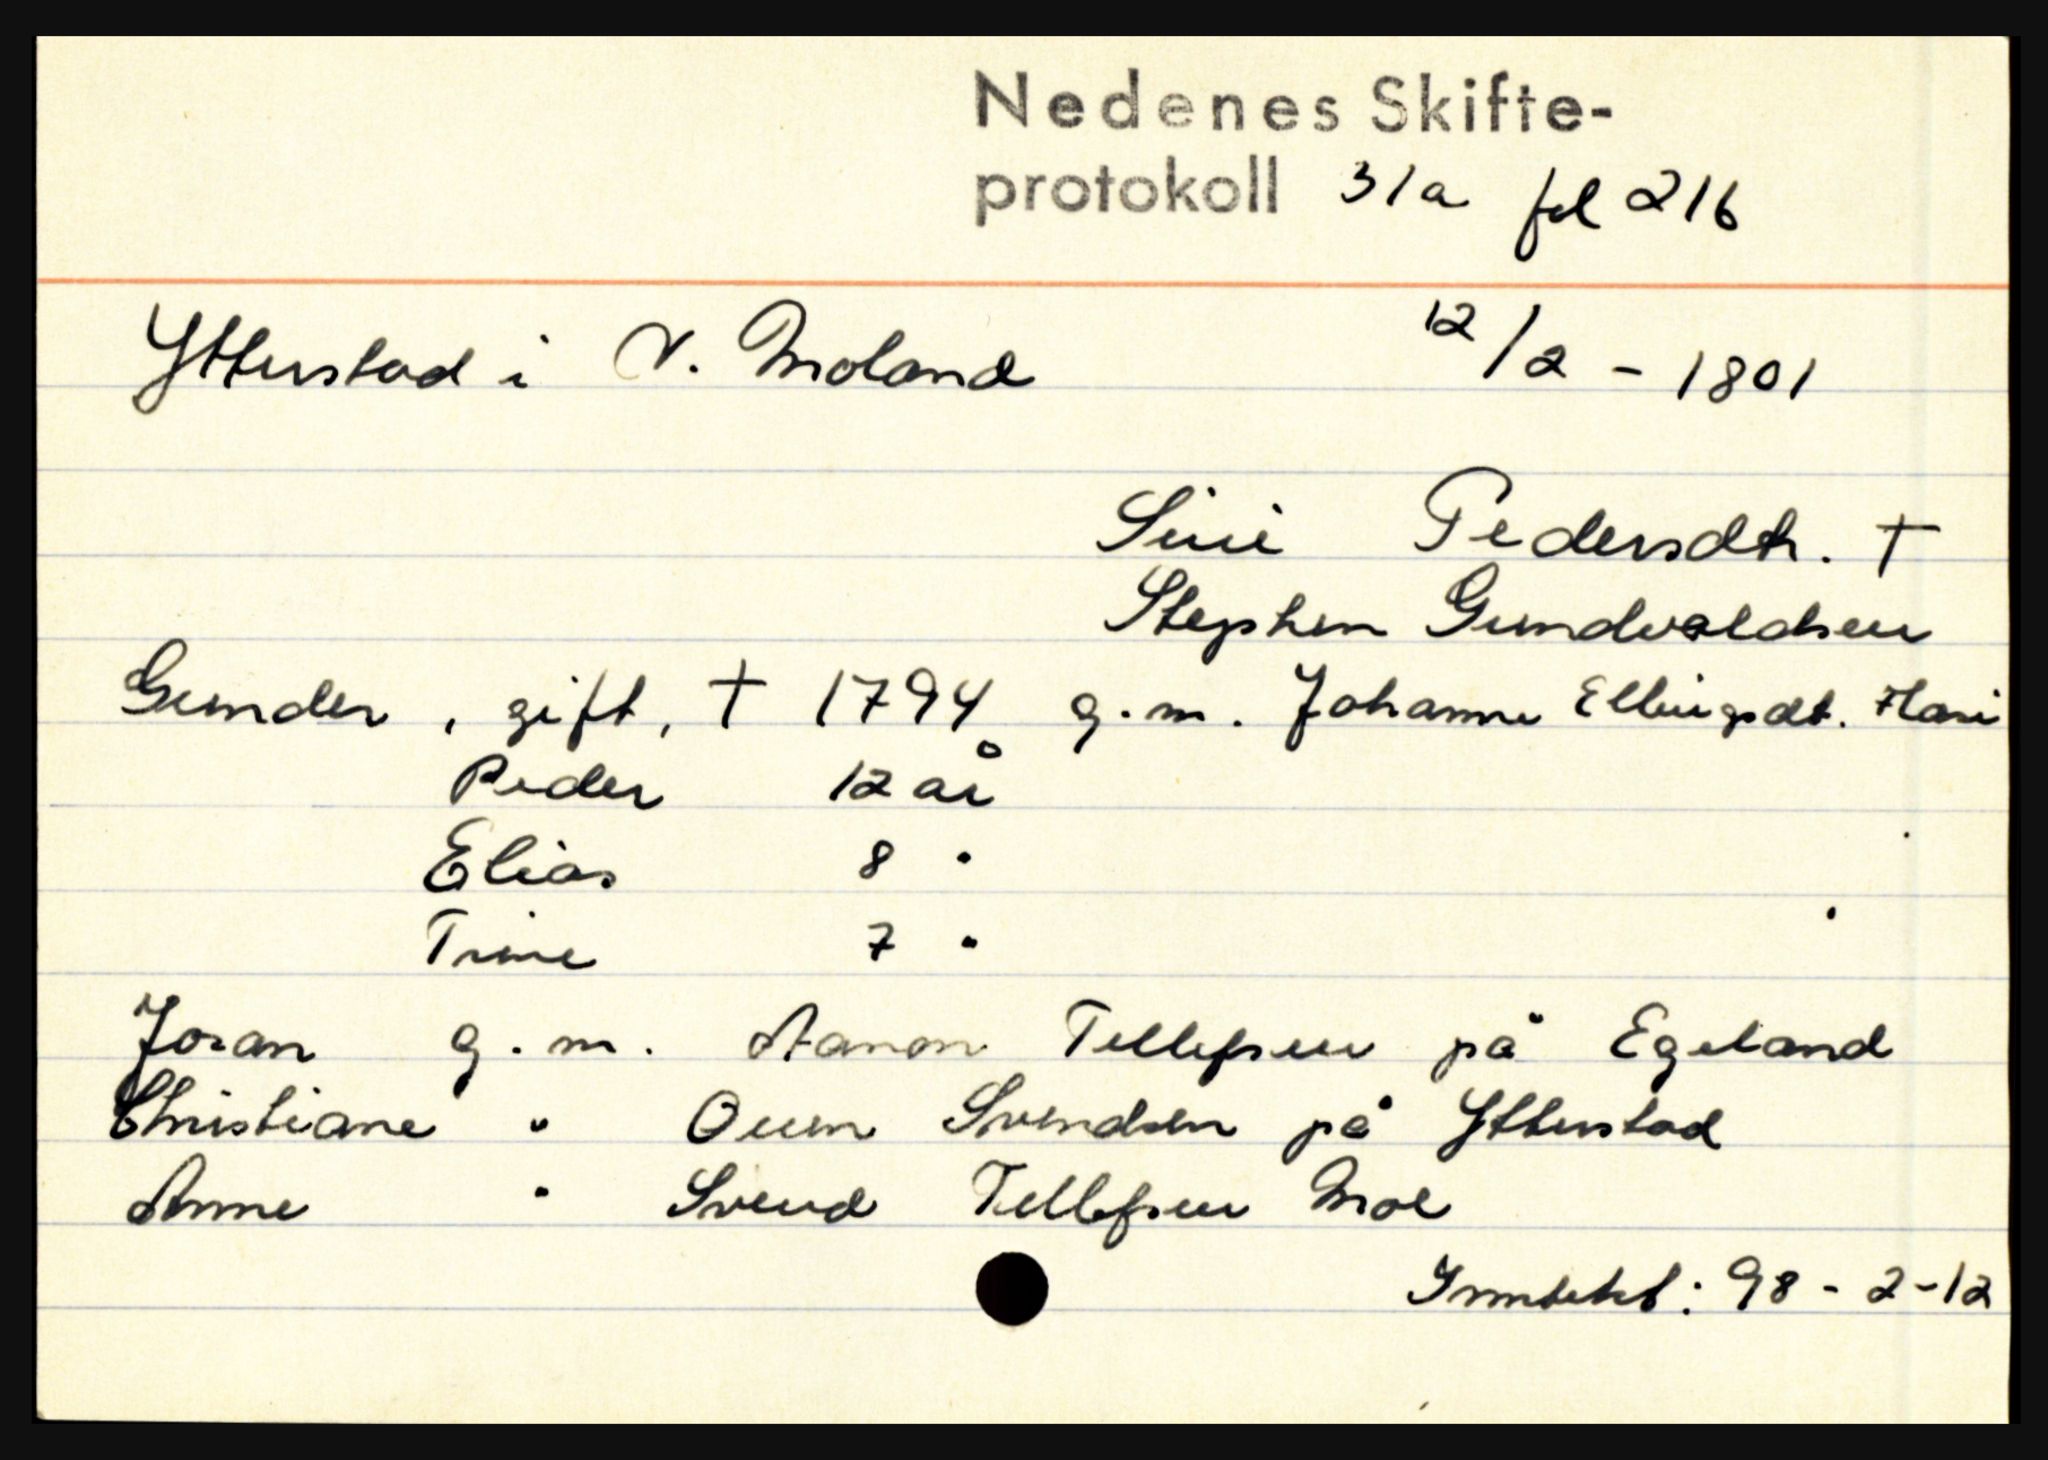 Nedenes Skifte-
protokoll 31a fol 216
Ytterstad i V. Moland 12/2 - 1801
Siri Pedersdtr. †
Stephen Gundvaldsen
Gunder, gift, † 1794 g.m. Johanne Ellingsdt.
Peder 12 år
Elias 8 "
Trine 7 "
Joran g.m. Aanon Tellefsen på Egeland
Christiane " Ouen Svendsen på Ytterstad
Anne " Svend Tellefsen Moe
Inntekt: 98 - 2 - 12